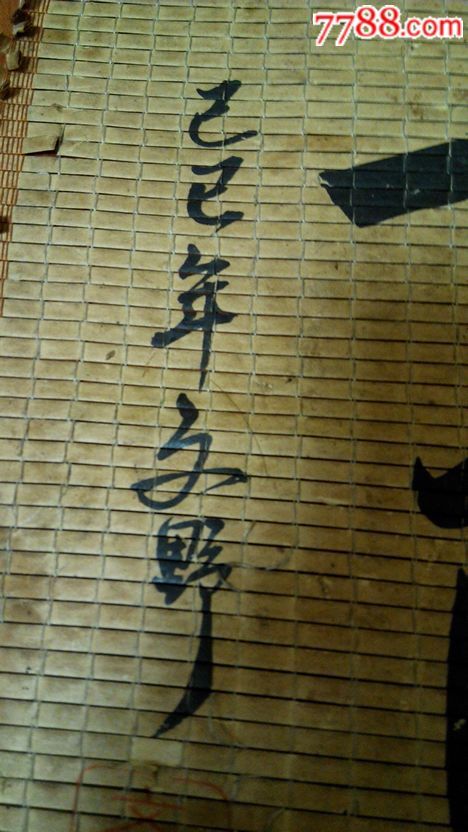 7788.com
己巳年文野